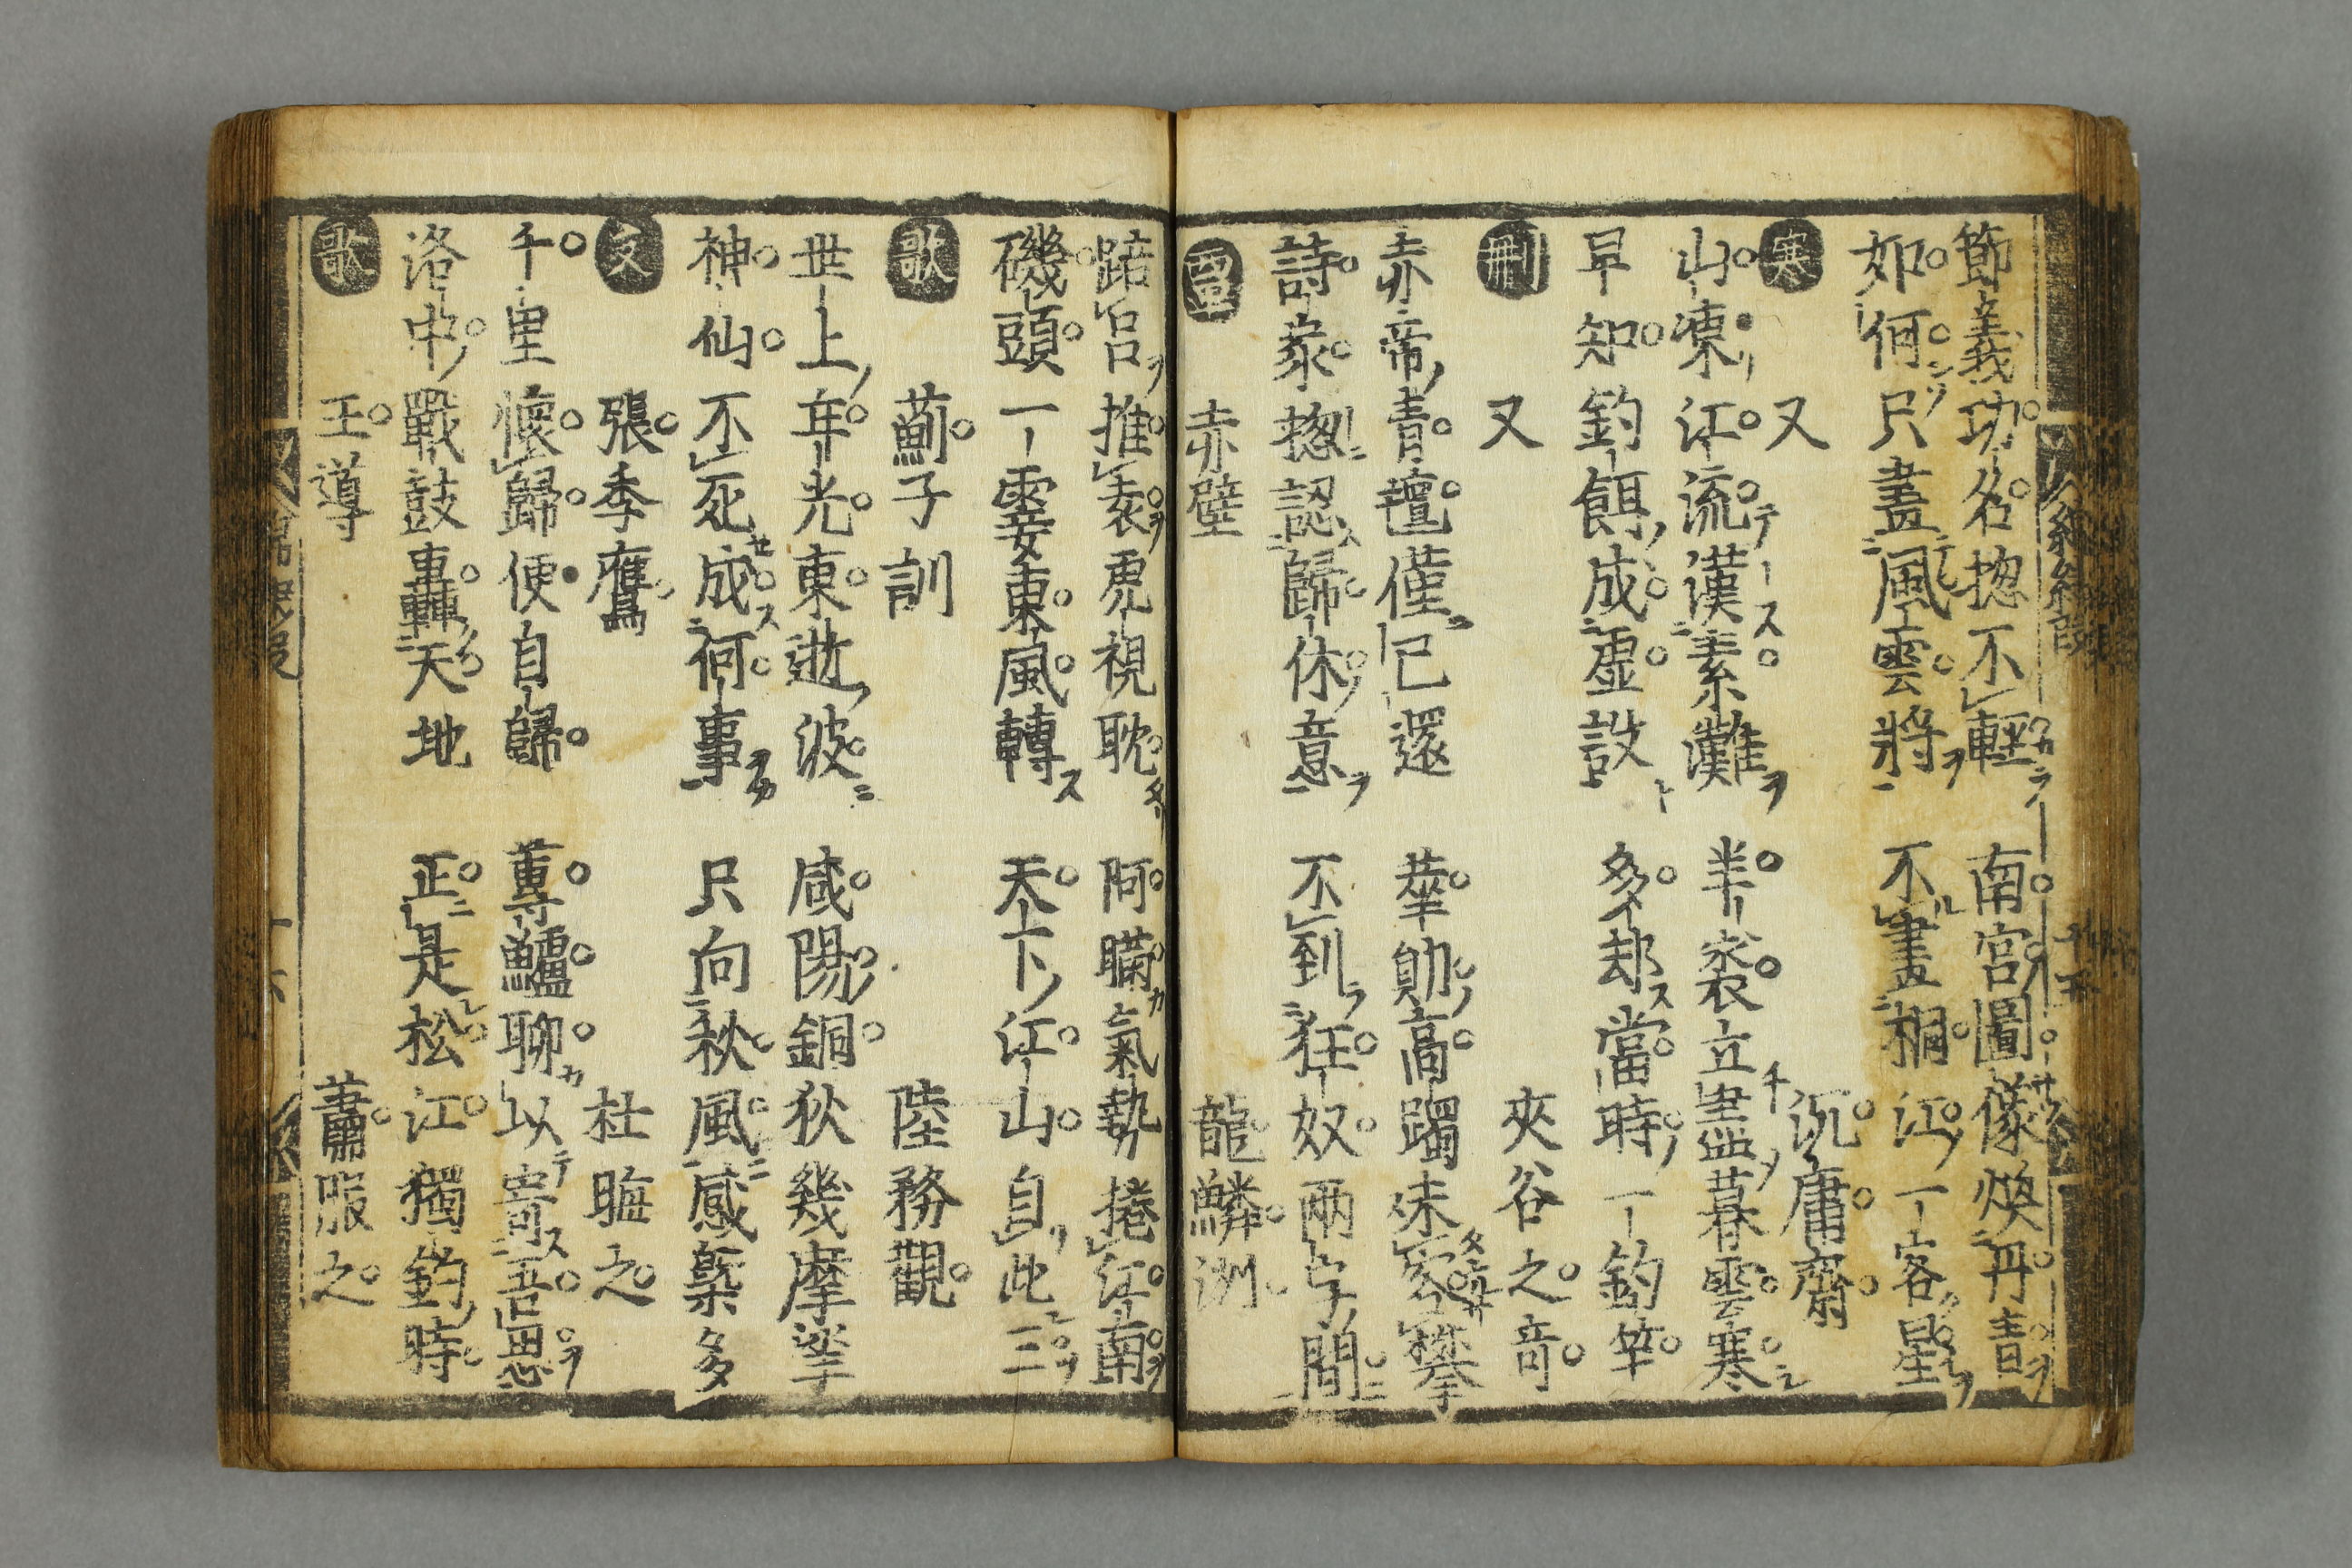 節義功名揔不輕 南宮圖像煥丹青
如何只畫風雲將 不畫桐江一客星
寒 又 沉庸齋
山凍江流漢素灘 半裘立盡暮雲寒
早知釣餌成虛設 多却當時一釣竿
刪 又 夾谷之奇
赤帝青氊僅已還 華勛高躅未容攀
詩家揔認歸休意 不到狂奴兩字間
赤壁 龍麟洲
踣呂推袁虎視耽 阿瞞氣勢捲江南
磯頭一霎東風轉 天下江山自此三
歌 薊子訓 陸務觀
世上年光東逝波 咸陽銅狄幾摩挲
神仙不死成何事 只向秋風感槩多
文 張季鷹 杜晦之
千里懷歸便自歸 蓴鱸聊以寄吾思
洛中戰鼓轟天地 正是松江獨釣時
歌 王導 蕭服之